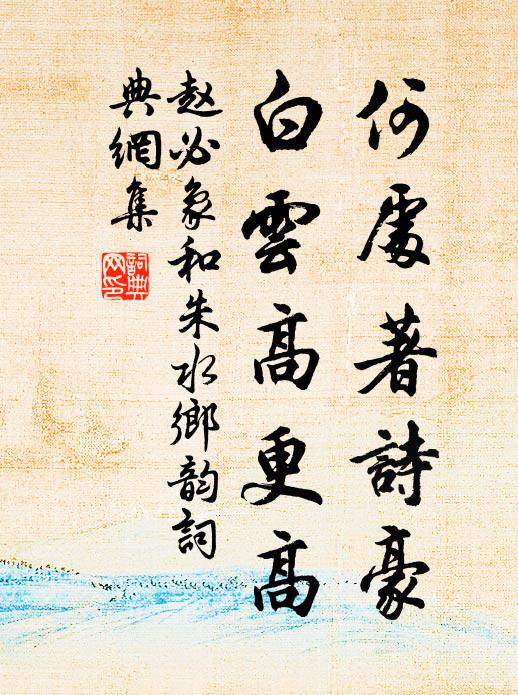 何處著詩豪
白雲高更高
赵必象和朱水鄉韵詞
典網集
詞典网印